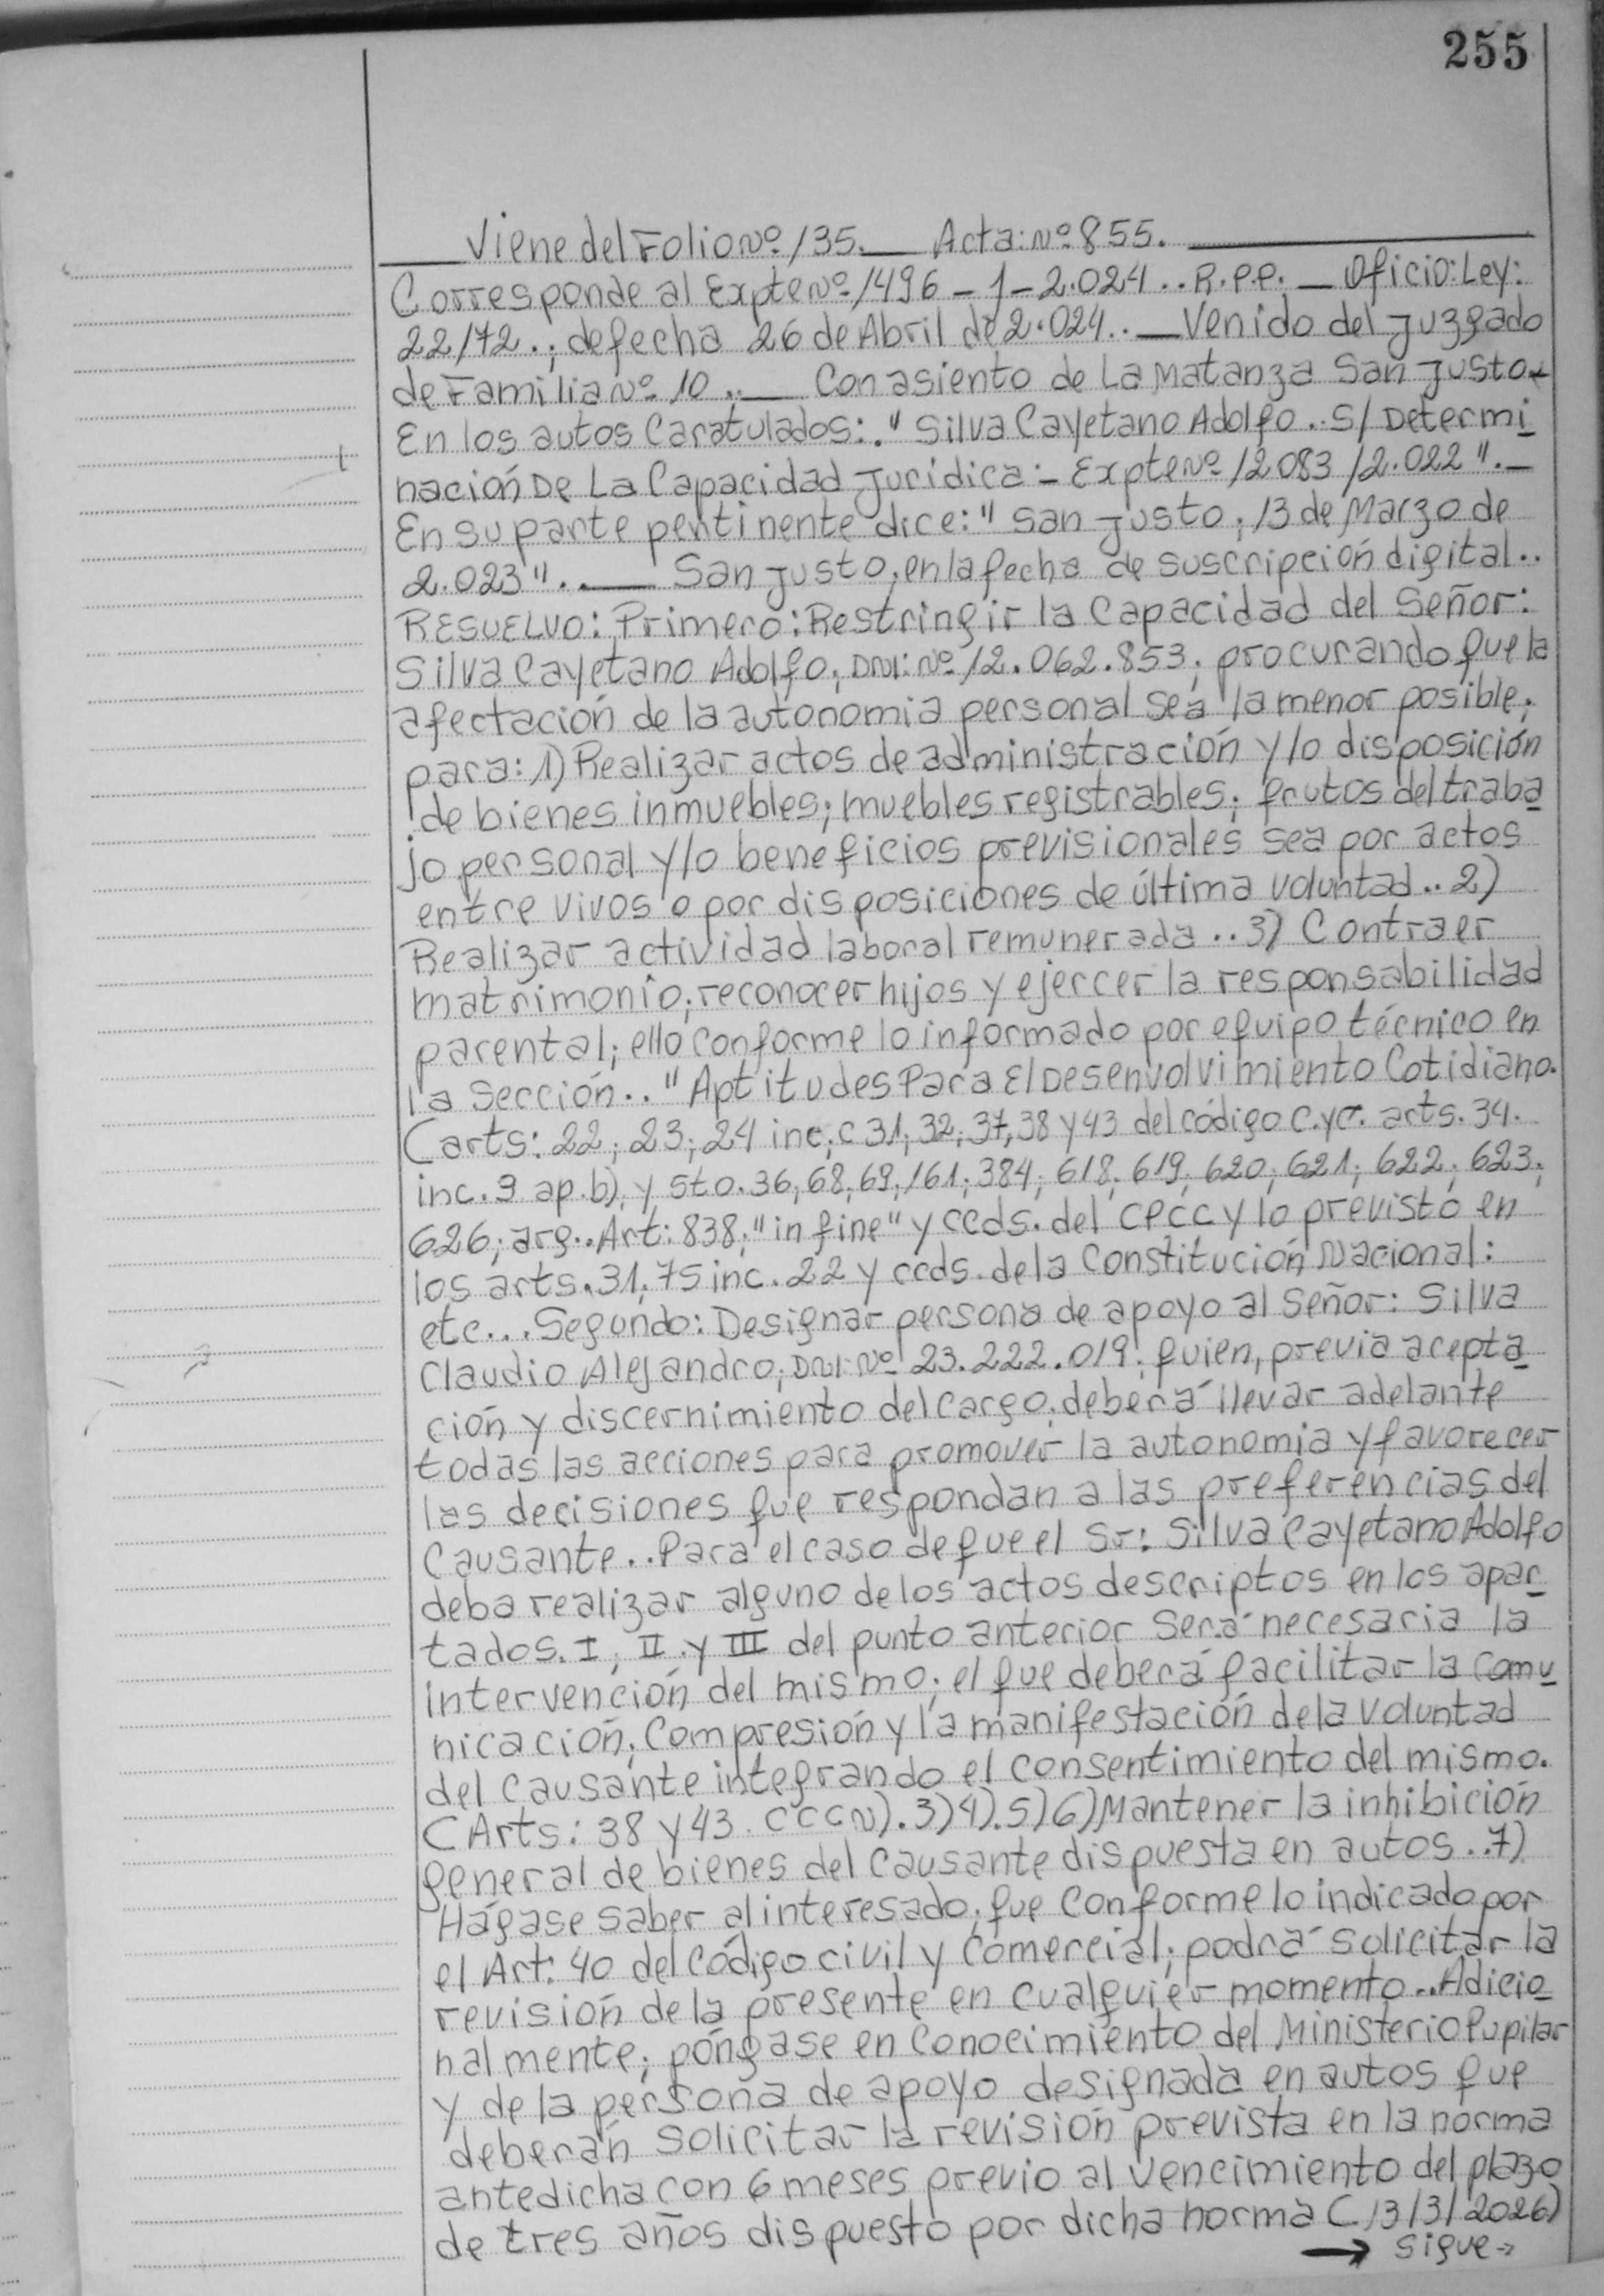 255
Viene del Folio Nº 135. Acta: Nº 855.
Corresponde al Expte Nº 1496-1-2.024.. R.P.P. Oficio: Ley:
22172.; de fecha 26 de Abril de 2.024.. Venido del Juzgado
de Familia Nº 10.. Con asiento de La Matanza San Justo.
En los autos Caratulados:. "Silva Cayetano Adolfo.. S/ Determi
nación De La Capacidad Jurídica:- Expte Nº 12083/2.022".
En su parte pertinente dice:" San Justo, 13 de Marzo de
2.023". San Justo, en la fecha de suscripción digital..
RESUELVO: Primero: Restringir la Capacidad del Señor:
Silva Cayetano Adolfo; DNI: Nº 12.062.853; procurando que la
afectación de la autonomia personal sea la menor posible;
para: 1) Realizar actos de administración y/o disposición
de bienes inmuebles; muebles registrables; frutos del traba
jo personal y/o beneficios previsionales sea por actos
entre vivos o por disposiciones de última voluntad.. 2)
Realizar actividad laboral remunerada.. 3) Contraer
matrimonio; reconocer hijos y ejercer la responsabilidad
parental; ello conforme lo informado por equipo técnico en
la Sección.. "Aptitudes Para El Desenvolvimiento Cotidiano.
(arts: 22; 23; 24 inc; c 31; 32; 37, 38 y 43 del código C.yC. arts. 34.
inc. 9 ap. b); y 5to. 36; 68; 69; 161; 384; 618; 619; 620; 621; 622; 623;
626; arg.. Art: 838; "in fine" y ccds. del CPCC y lo previsto en
los arts. 31; 75 inc. 22 y ccds. de la Constitución Nacional:
etc... Segundo: Designar persona de apoyo al Señor: Silva
Claudio Alejandro; DNI: Nº 23.222.019; quien, previa acepta
ción y discernimiento del cargo; deberá llevar adelante
todas las acciones para promover la autonomia y favorecer
las decisiones que respondan a las preferencias del
Causante.. Para el caso de que el Sr: Silva Cayetano Adolfo
deba realizar alguno de los actos descriptos en los apar
tados. I; II y III del punto anterior será necesaria la
intervención del mismo; el que deberá facilitar la comu
nicación; Compresión y la manifestación de la voluntad
del causante integrando el consentimiento del mismo.
(Arts: 38 y 43. CCCN). 3) 4). 5) 6) Mantener la inhibición
general de bienes del causante dispuesta en autos.. 7)
Hágase saber al interesado; que conforme lo indicado por
el Art: 40 del código civil y Comercial; podrá solicitar la
revisión de la presente en cualquier momento.. Adicio
nalmente; póngase en conocimiento del Ministerio Pupilar
y de la persona de apoyo designada en autos que
deberán solicitar la revisión prevista en la norma
antedicha con 6 meses previo al vencimiento del plazo
de tres años dispuesto por dicha norma (13/3/2026)
→ sigue →